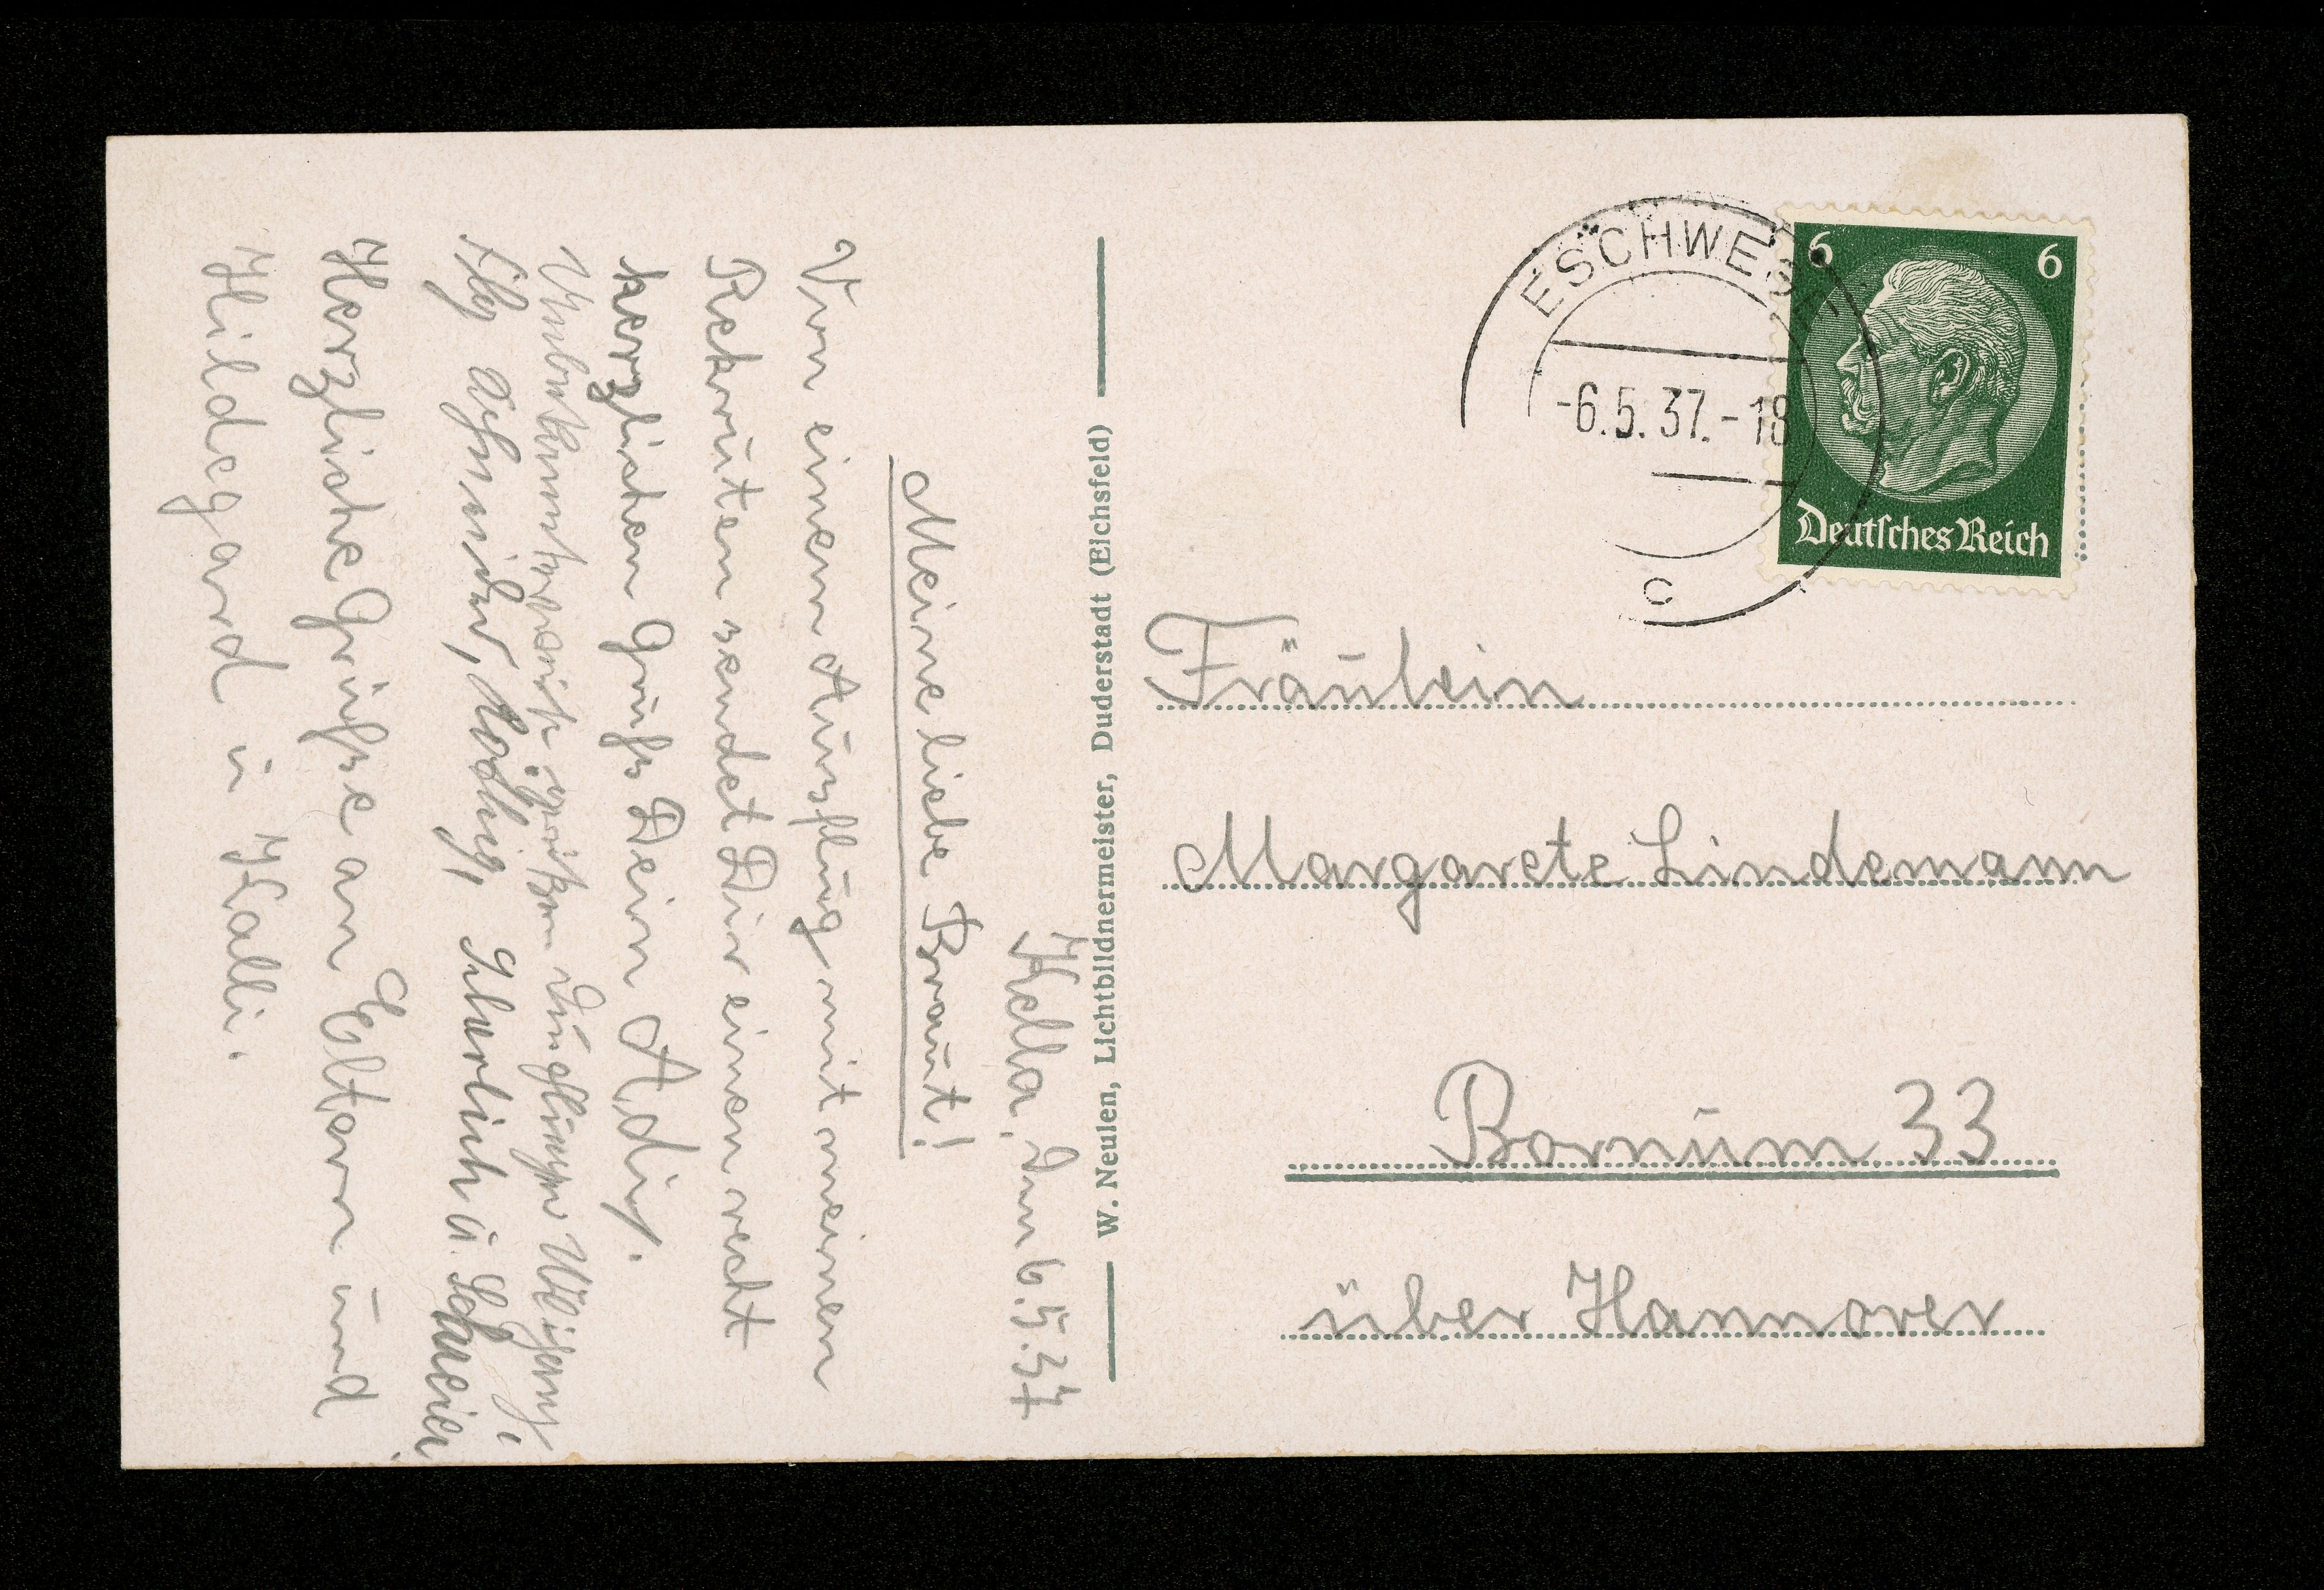 Kella, den 6.5.37
Meine liebe Braut!
Von einem Ausflug mit meinen
Rekruten sendet Dir einen recht
herzlichen Gruß Dein Adi.
Unbekannterweise grüßen
Herzliche Grüße an Eltern und
Hildegard u Halli.
W. Neulen, Lichtbildnermeister, Duderstadt (Eichsfeld)
ESCHWEGE
-6.5.37.-18
c
6 6
Deutsches Reich
Fräulein
Margarete Lindemann
Bornum 33
über Hannover